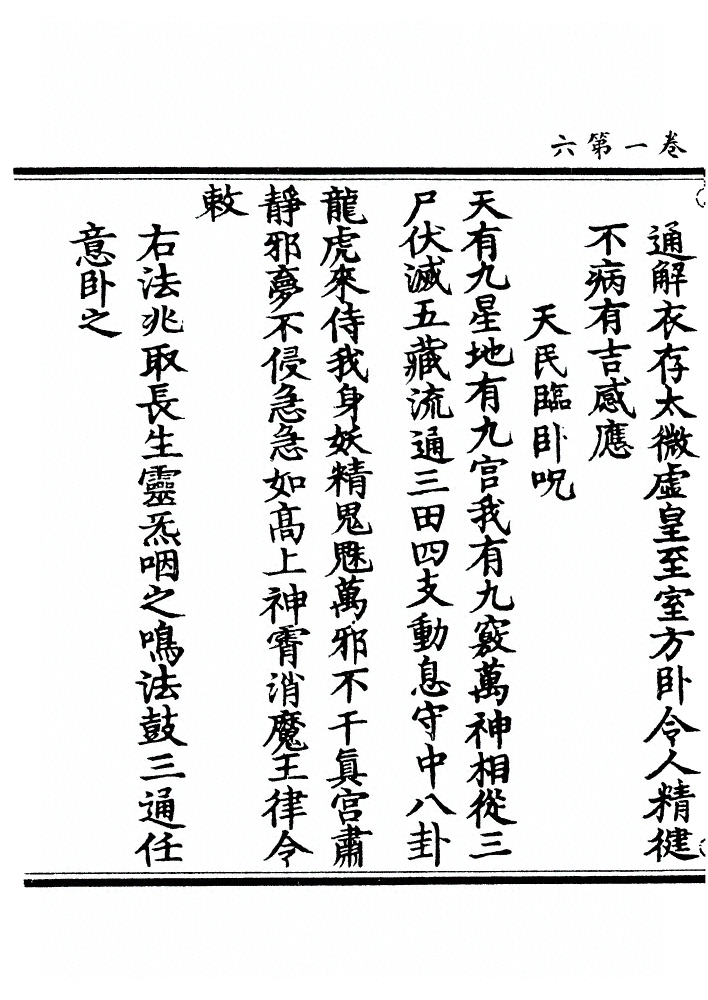 卷一第六
通解衣存太微虛皇至室方卧令人精健
不病有吉感應
天民臨卧呪
天有九星地有九宫我有九竅萬神相從三
尸伏滅五藏流通三田四支動息守中八卦
龍虎來侍我身妖精鬼魅萬邪不干真宫肅
靜邪夢不侵急急如高上神霄消魔王律令
敕
右法兆取長生靈炁咽之鳴法鼓三通任
意卧之